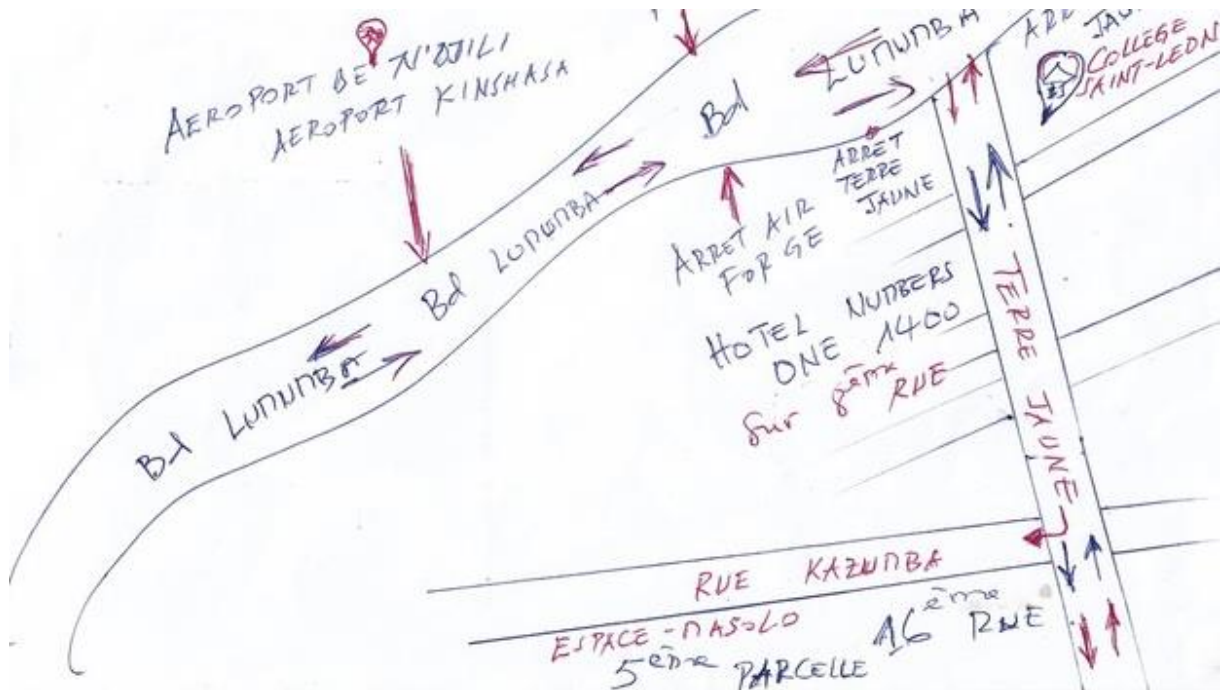 AEROPORT DE N'DJILI
AEROPORT KINSHASA
Bd LUMUMBA
Bd LUMUMBA
Bd LUMUMBA
ARRET AIR
FORGE
ARRET
TERRE
JAUNE
COLLEGE
SAINT-LEON
HOTEL NUMBERS
ONE 1400
Sur 8ème RUE
TERRE JAUNE
RUE KAZUMBA
ESPACE-MASOLO
16ème RUE
5ème PARCELLE